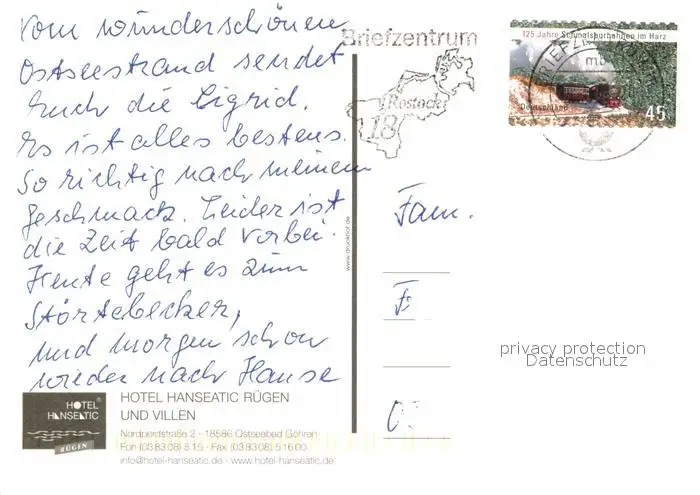 Vom wunderschönen
Ostseestrand sendet
Euch die Sigrid.
Es ist alles bestens.
So richtig nach meinem
Geschmack. Leider ist
die Zeit bald vorbei.
Heute geht es zum
Störtebecker,
und morgen schon
wieder nach Hause
HOTEL
HANSEATIC
RÜGEN
HOTEL HANSEATIC RÜGEN
UND VILLEN
Nordperdstraße 2 · 18586 Ostseebad Göhren
Fon (03 83 08) 5 15 · Fax (03 83 08) 5 16 00
info@hotel-hanseatic.de · www.hotel-hanseatic.de
www.druckhof.de
Briefzentrum
Rostock
18
125 Jahre Schmalspurbahnen im Harz
Deutschland
45
Fam.
F
0
privacy protection
Datenschutz